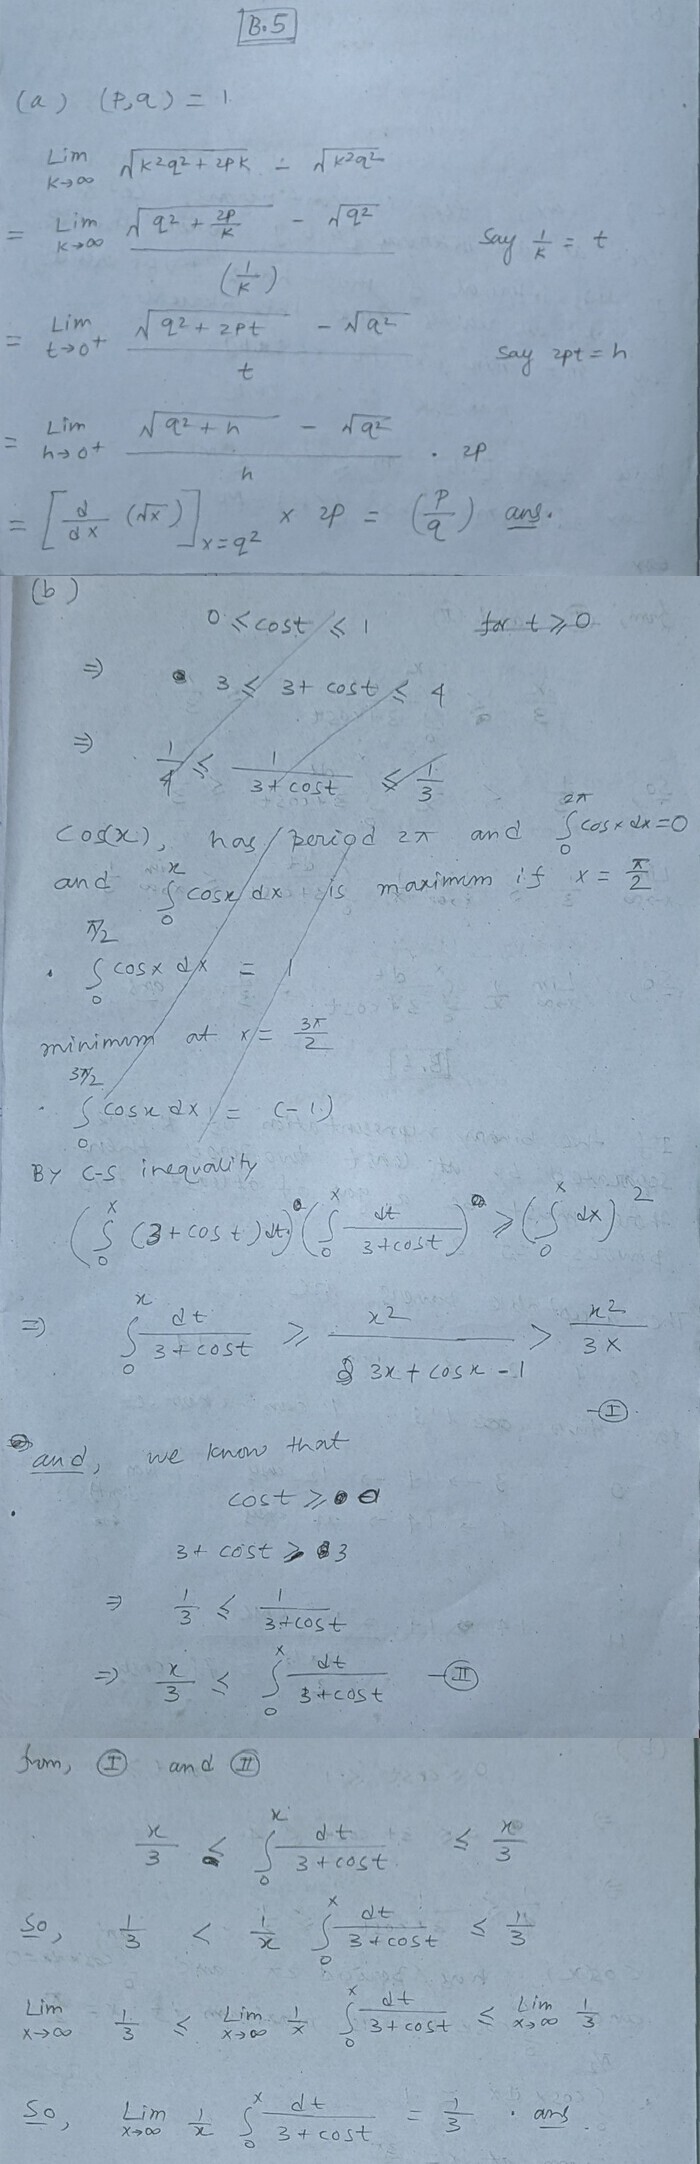 B.5
(a) (p,q) = 1
Lim k→∞ √(k²q² + 2pk) - √(k²q²)
= Lim k→∞ (√(q² + 2p/k) - √q²) / (1/k) Say 1/k = t
= Lim t→0⁺ (√(q² + 2pt) - √q²) / t Say 2pt = h
= Lim h→0⁺ (√(q² + h) - √q²) / h · 2p
= [d/dx (√x)]_{x=q²} × 2p = (p/q) ans.
(b)
0 ≤ cost ≤ 1 for t ≥ 0
⇒ 3 ≤ 3 + cost ≤ 4
⇒ 1/4 ≤ 1/(3+cost) ≤ 1/3
Cos(x), has period 2π and ∫₀^{2π} cosx dx = 0
and ∫₀^x cosx dx is maximum if x = π/2
∫₀^{π/2} cosx dx = 1
minimum at x = 3π/2
∫₀^{3π/2} cosx dx = (-1)
By C-S inequality
(∫₀^x (3 + cos t) dt) (∫₀^x dt/(3+cost)) ≥ (∫₀^x dx)²
⇒ ∫₀^x dt/(3+cost) ≥ x²/(3x + cosx - 1) > x²/3x
- Ⓘ
and, we know that
cost ≥ 0
3 + cost ≥ 3
⇒ 1/3 ≤ 1/(3+cost)
⇒ x/3 ≤ ∫₀^x dt/(3+cost) - Ⓘ Ⓘ
from, Ⓘ and Ⓘ Ⓘ
x/3 ≤ ∫₀^x dt/(3+cost) ≤ x/3
So, 1/3 < 1/x ∫₀^x dt/(3+cost) ≤ 1/3
Lim x→∞ 1/3 ≤ Lim x→∞ 1/x ∫₀^x dt/(3+cost) ≤ Lim x→∞ 1/3
So, Lim x→∞ 1/x ∫₀^x dt/(3+cost) = 1/3 . ans.